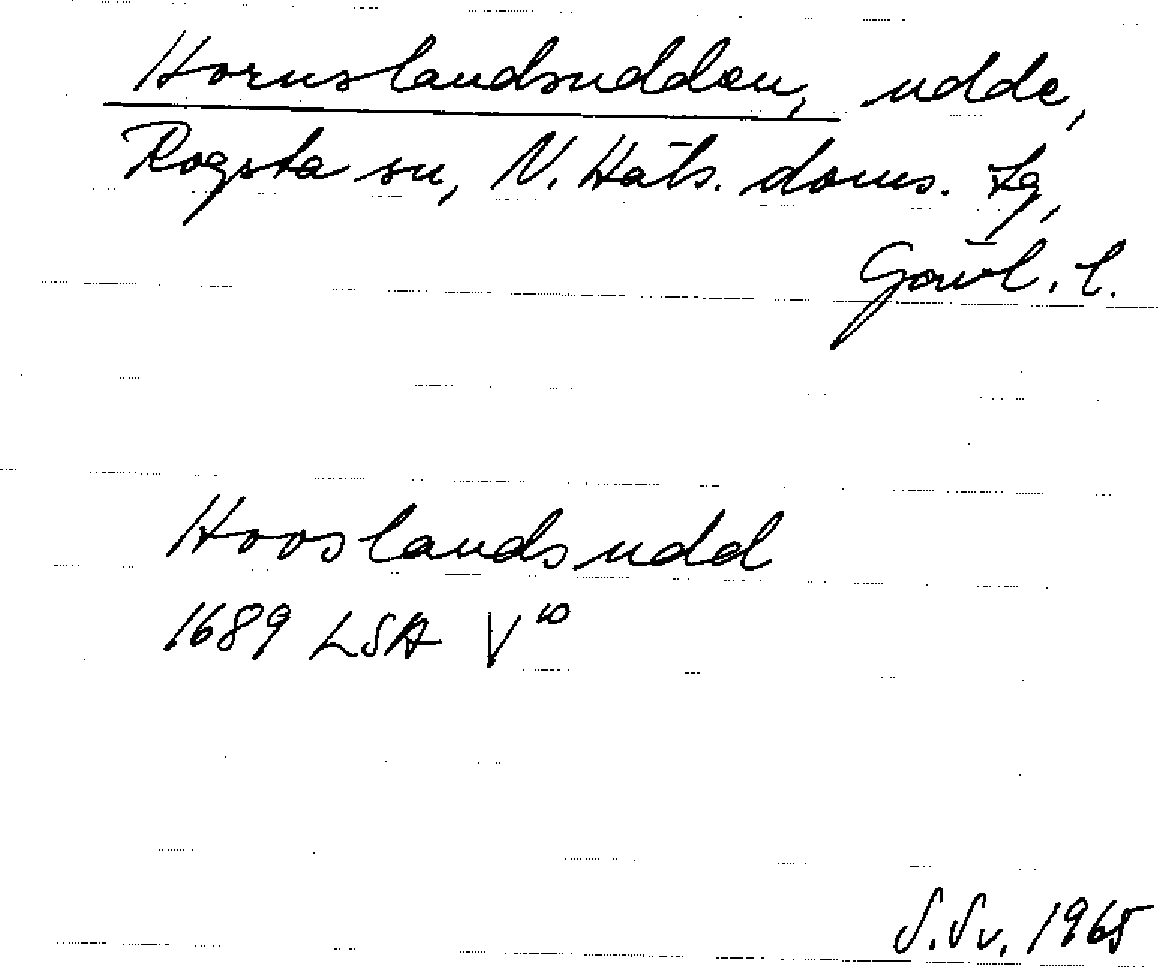 Hornslandsudden, udde,
Rogsta sn, N. Häls. doms. tg,
Gävl. l.
Hooslandsudd
1689 LSA V¹⁰
S. Sv. 1965